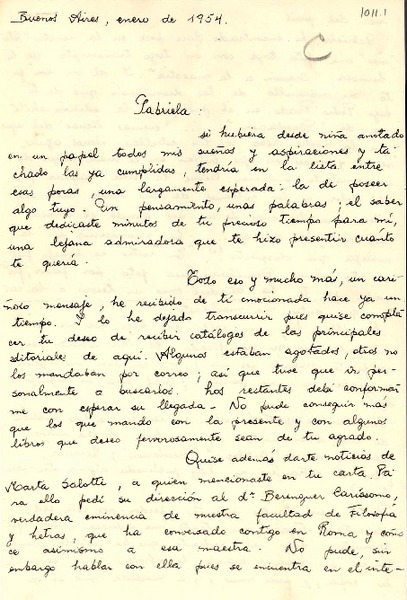 Buenos Aires, enero de 1954.
1011.1
C
Gabriela:
si hubiera desde niña anotado
en un papel todos mis sueños y aspiraciones y ta-
chado las ya cumplidas, tendría en la lista entre
esas pocas, una largamente esperada: la de poseer
algo tuyo. Un pensamiento, unas palabras; el saber
que dedicaste minutos de tu precioso tiempo para mí,
una lejana admiradora que te hizo presentir cuánto
te quería.
Todo eso y mucho más, un cari-
ñoso mensaje, he recibido de tí emocionada hace ya un
tiempo. Y lo he dejado transcurrir pues quise compla-
cer tu deseo de recibir catálogos de las principales
editoriales de aquí. Algunos estaban agotados, otros no
los mandaban por correo; así que tuve que ir per-
sonalmente a buscarlos. Los restantes debí conformar-
me con esperar su llegada. No pude conseguir más
que los que mando con la presente y con algunos
libros que deseo fervorosamente sean de tu agrado.
Quise además darte noticias de
Marta Salotti, a quien mencionaste en tu carta. Pa-
ra ello pedí su dirección al dr. Berenguer Carisomo,
verdadera eminencia de nuestra facultad de Filosofía
y Letras, que ha conversado contigo en Roma y cono-
ce asimismo a esa maestra. No pude, sin
embargo hablar con ella pues se encuentra en el inte-